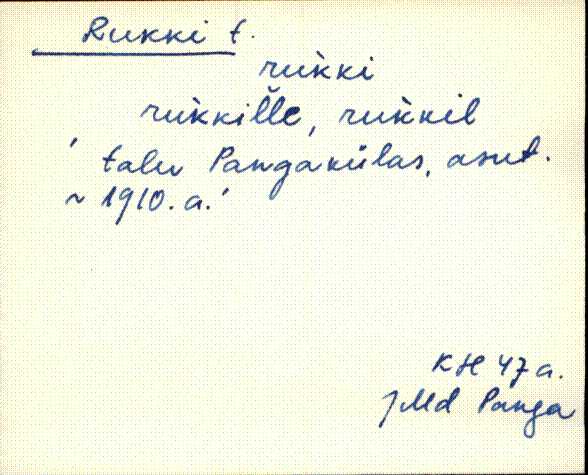 Rukki t.
rùkki
rùkkiĺle, rùkkil
' talu Pangakülas, asut.
~ 1910. a.'
KH 47 a.
JMd Panga